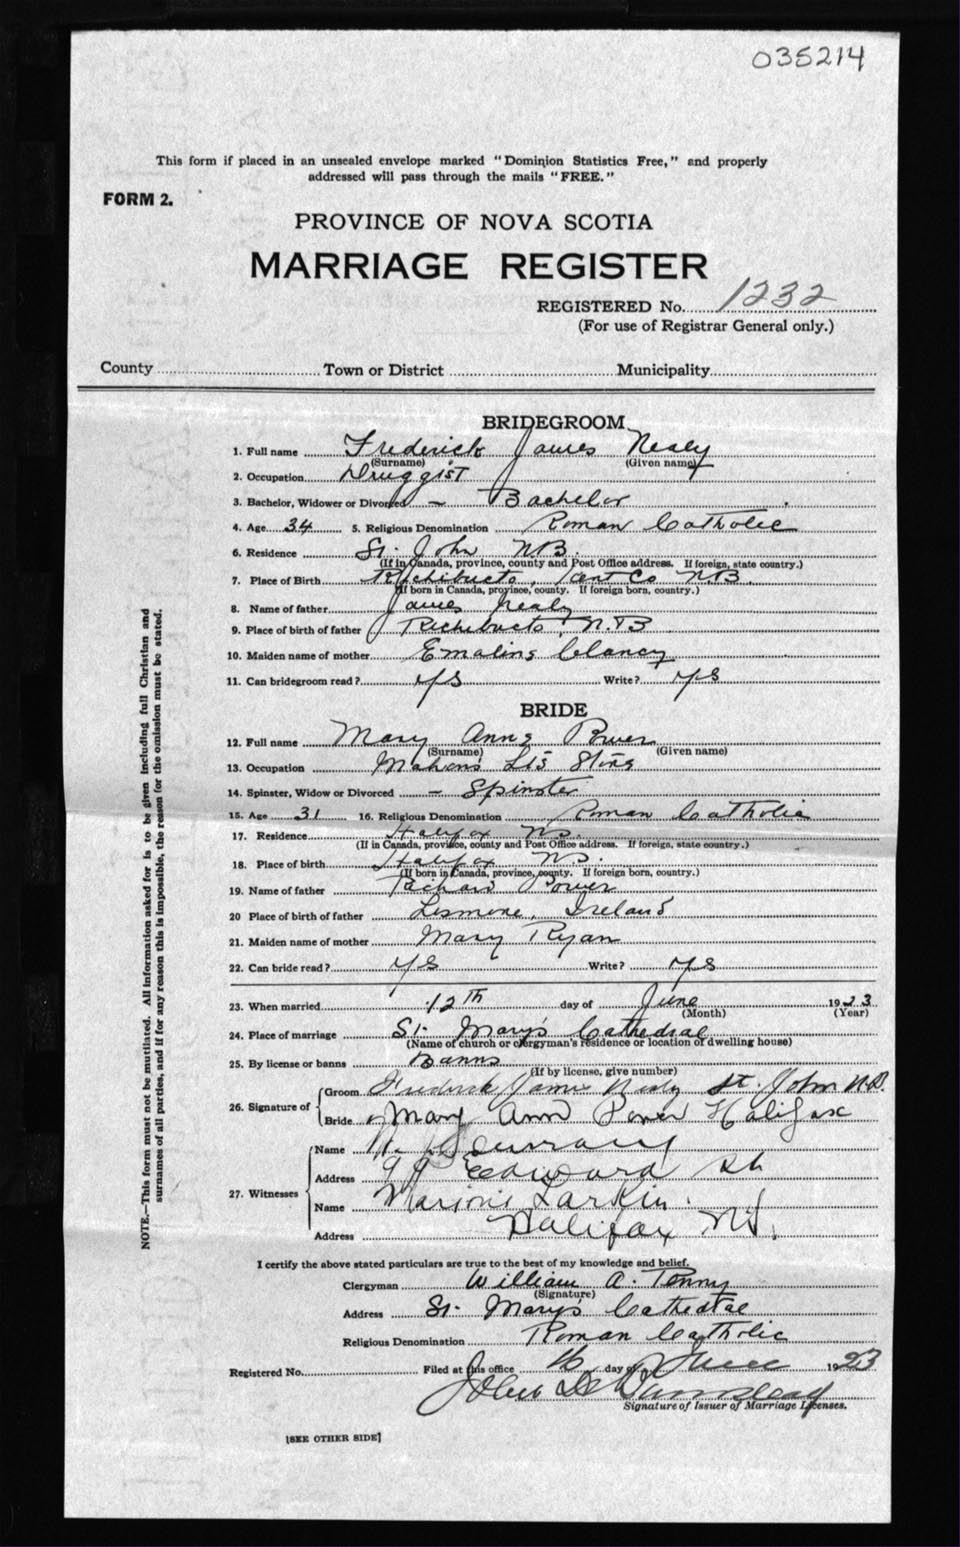 035214
This form if placed in an unsealed envelope marked "Dominion Statistics Free," and properly
addressed will pass through the mails "FREE."
FORM 2.
PROVINCE OF NOVA SCOTIA
MARRIAGE REGISTER
REGISTERED No. 1232
(For use of Registrar General only.)
County Town or District Municipality
BRIDEGROOM
1. Full name Frederick James Nealy
(Surname) (Given name)
2. Occupation Druggist
3. Bachelor, Widower or Divorced - Bachelor
4. Age 34 5. Religious Denomination Roman Catholic
6. Residence St. John NB.
(If in Canada, province, county and Post Office address. If foreign, state country.)
7. Place of Birth Richibucto, Kent Co NB.
(If born in Canada, province, county. If foreign born, country.)
8. Name of father James Nealy
9. Place of birth of father Richibucto, N.B
10. Maiden name of mother Emaline Clancy
11. Can bridegroom read? yes Write? yes
BRIDE
12. Full name Mary Anne Power
(Surname) (Given name)
13. Occupation Mahons Ltd Store
14. Spinster, Widow or Divorced - Spinster
15. Age 31 16. Religious Denomination Roman Catholic
17. Residence Halifax NS.
(If in Canada, province, county and Post Office address. If foreign, state country.)
18. Place of birth Halifax NS.
(If born in Canada, province, county. If foreign born, country.)
19. Name of father Richard Power
20 Place of birth of father Lismore, Ireland
21. Maiden name of mother Mary Ryan
22. Can bride read? yes Write? yes
23. When married 12th day of June 1923
(Month) (Year)
24. Place of marriage St. Mary's Cathedral
(Name of church or clergyman's residence or location of dwelling house)
25. By license or banns Banns
(If by license, give number)
26. Signature of
Groom Frederick James Nealy St. John N.B.
Bride Mary Ann Power Halifax
27. Witnesses
Name
Address 99 Edward St
Name Marjorie Larkin.
Address Halifax N.S.
I certify the above stated particulars are true to the best of my knowledge and belief.
Clergyman William A. Penny
(Signature)
Address St. Mary's Cathedral
Religious Denomination Roman Catholic
Registered No. Filed at this office 16 day of June 1923
John
Signature of Issuer of Marriage Licenses.
[SEE OTHER SIDE]
NOTE.—This form must not be mutilated. All information asked for is to be given including full Christian and
surnames of all parties, and if for any reason this is impossible, the reason for the omission must be stated.